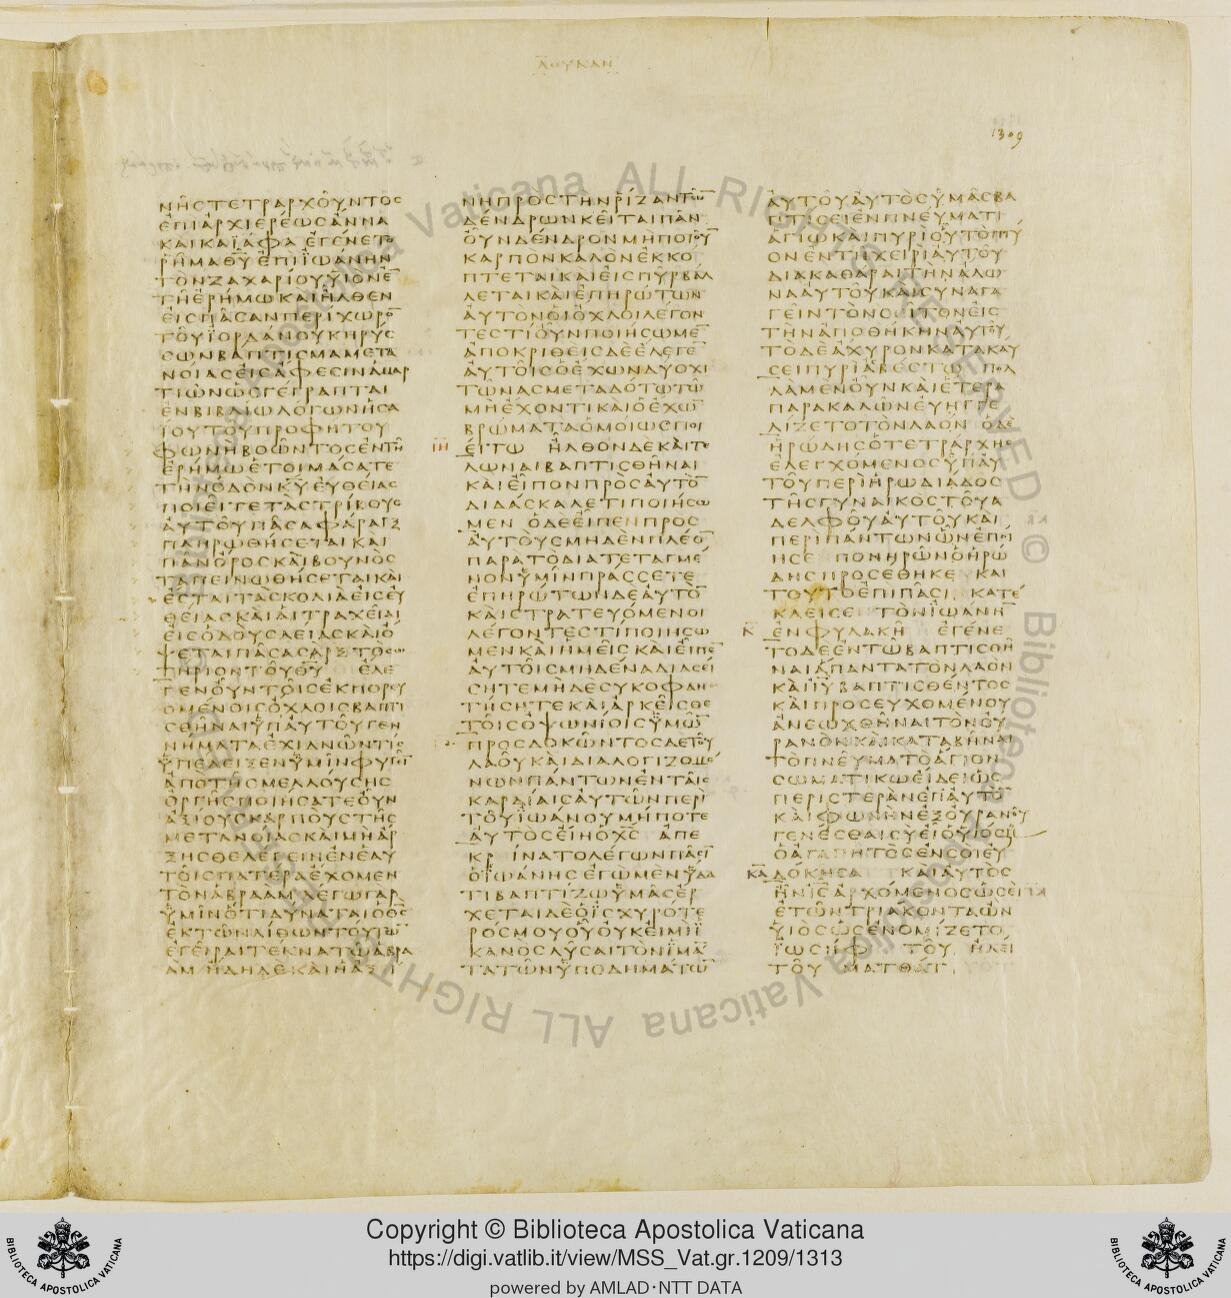 ΛΟΥΚΑΝ
1309
ΝΗΣΤΕΤΡΑΡΧΟΥΝΤΟΣ
ΕΠΙΑΡΧΙΕΡΕΩΣΑΝΝΑ
ΚΑΙΚΑΙΑΦΑ ΕΓΕΝΕΤΟ
ΡΗΜΑΘΥ ΕΠΙΙΩΑΝΗΝ
ΤΟΝΖΑΧΑΡΙΟΥΥΙΟΝΕ̅
ΤΗΕΡΗΜΩΚΑΙΗΛΘΕΝ
ΕΙΣΠΑΣΑΝΠΕΡΙΧΩΡΟ̅
ΤΟΥΙΟΡΔΑΝΟΥΚΗΡΥΣ
ΣΩΝΒΑΠΤΙΣΜΑΜΕΤΑ
ΝΟΙΑΣΕΙΣΑΦΕΣΙΝΑΜΑΡ
ΤΙΩΝΩΣΓΕΓΡΑΠΤΑΙ
ΕΝΒΙΒΛΙΩΛΟΓΩΝΗΣΑ
ΙΟΥΤΟΥΠΡΟΦΗΤΟΥ
ΦΩΝΗΒΟΩΝΤΟΣΕΝΤΗ
ΕΡΗΜΩΕΤΟΙΜΑΣΑΤΕ
ΤΗΝΟΔΟΝΚΥ ΕΥΘΕΙΑΣ
ΠΟΙΕΙΤΕΤΑΣΤΡΙΒΟΥΣ
ΑΥΤΟΥΠΑΣΑΦΑΡΑΓΞ
ΠΛΗΡΩΘΗΣΕΤΑΙΚΑΙ
ΠΑΝΟΡΟΣΚΑΙΒΟΥΝΟΣ
ΤΑΠΕΙΝΩΘΗΣΕΤΑΙΚΑΙ
ΕΣΤΑΙΤΑΣΚΟΛΙΑΕΙΣΕΥ
ΘΕΙΑΣΚΑΙΑΙΤΡΑΧΕΙΑΙ
ΕΙΣΟΔΟΥΣΛΕΙΑΣΚΑΙΟ
ΨΕΤΑΙΠΑΣΑΣΑΡΞΤΟΣΩ
ΤΗΡΙΟΝΤΟΥΘΥ ΕΛΕ
ΓΕΝΟΥΝΤΟΙΣΕΚΠΟΡΕΥ
ΟΜΕΝΟΙΣΟΧΛΟΙΣΒΑΠΤΙ
ΣΘΗΝΑΙΥΠΑΥΤΟΥΓΕΝ
ΝΗΜΑΤΑΕΧΙΔΝΩΝΤΙΣ
ΥΠΕΔΕΙΞΕΝΥΜΙΝΦΥΓΕΙ̅
ΑΠΟΤΗΣΜΕΛΛΟΥΣΗΣ
ΟΡΓΗΣΠΟΙΗΣΑΤΕΟΥΝ
ΑΞΙΟΥΣΚΑΡΠΟΥΣΤΗΣ
ΜΕΤΑΝΟΙΑΣΚΑΙΜΗΑΡ
ΞΗΣΘΕΛΕΓΕΙΝΕΝΕΑΥ
ΤΟΙΣΠΑΤΕΡΑΕΧΟΜΕΝ
ΤΟΝΑΒΡΑΑΜ ΛΕΓΩΓΑΡ
ΥΜΙΝΟΤΙΔΥΝΑΤΑΙΟΘΣ
ΕΚΤΩΝΛΙΘΩΝΤΟΥΤΩ̅
ΕΓΕΙΡΑΙΤΕΚΝΑΤΩΑΒΡΑ
ΑΜ ΗΔΗΔΕΚΑΙΗΑΞΙ
ΝΗΠΡΟΣΤΗΝΡΙΖΑΝΤΩ̅
ΔΕΝΔΡΩΝΚΕΙΤΑΙΠΑΝ
ΟΥΝΔΕΝΔΡΟΝΜΗΠΟΙΟΥ̅
ΚΑΡΠΟΝΚΑΛΟΝΕΚΚΟ
ΠΤΕΤΑΙΚΑΙΕΙΣΠΥΡΒΑΛ
ΛΕΤΑΙΚΑΙΕΠΗΡΩΤΩΝ
ΑΥΤΟΝΟΙΟΧΛΟΙΛΕΓΟΝ
ΤΕΣΤΙΟΥΝΠΟΙΗΣΩΜΕ̅
ΑΠΟΚΡΙΘΕΙΣΔΕΕΛΕΓΕ̅
ΑΥΤΟΙΣΟΕΧΩΝΔΥΟΧΙ
ΤΩΝΑΣΜΕΤΑΔΟΤΩΤΩ
ΜΗΕΧΟΝΤΙΚΑΙΟΕΧΩ̅
ΒΡΩΜΑΤΑΟΜΟΙΩΣΠΟΙ
ΕΙΤΩ ΗΛΘΟΝΔΕΚΑΙΤΕ
ΛΩΝΑΙΒΑΠΤΙΣΘΗΝΑΙ
ΚΑΙΕΙΠΟΝΠΡΟΣΑΥΤΟ̅
ΔΙΔΑΣΚΑΛΕΤΙΠΟΙΗΣΩ
ΜΕΝ ΟΔΕΕΙΠΕΝΠΡΟΣ
ΑΥΤΟΥΣΜΗΔΕΝΠΛΕΟ̅
ΠΑΡΑΤΟΔΙΑΤΕΤΑΓΜΕ
ΝΟΝΥΜΙΝΠΡΑΣΣΕΤΕ
ΕΠΗΡΩΤΩΝΔΕΑΥΤΟ̅
ΚΑΙΣΤΡΑΤΕΥΟΜΕΝΟΙ
ΛΕΓΟΝΤΕΣΤΙΠΟΙΗΣΩ
ΜΕΝΚΑΙΗΜΕΙΣΚΑΙΕΙΠΕ̅
ΑΥΤΟΙΣΜΗΔΕΝΑΔΙΑΣΕΙ
ΣΗΤΕΜΗΔΕΣΥΚΟΦΑΝ
ΤΗΣΗΤΕΚΑΙΑΡΚΕΙΣΘΕ
ΤΟΙΣΟΨΩΝΙΟΙΣΥΜΩ̅
ΠΡΟΣΔΟΚΩΝΤΟΣΔΕΤΟΥ
ΛΑΟΥΚΑΙΔΙΑΛΟΓΙΖΟΜΕ
ΝΩΝΠΑΝΤΩΝΕΝΤΑΙΣ
ΚΑΡΔΙΑΙΣΑΥΤΩΝΠΕΡΙ
ΤΟΥΙΩΑΝΟΥΜΗΠΟΤΕ
ΑΥΤΟΣΕΙΗΟΧΣ ΑΠΕ
ΚΡΙΝΑΤΟΛΕΓΩΝΠΑΣΙ̅
ΟΙΩΑΝΗΣΕΓΩΜΕΝΥΔΑ
ΤΙΒΑΠΤΙΖΩΥΜΑΣΕΡ
ΧΕΤΑΙΔΕΟΙΣΧΥΡΟΤΕ
ΡΟΣΜΟΥΟΥΟΥΚΕΙΜΙΙ
ΚΑΝΟΣΛΥΣΑΙΤΟΝΙΜΑ̅
ΤΑΤΩΝΥΠΟΔΗΜΑΤΩ̅
ΑΥΤΟΥΑΥΤΟΣΥΜΑΣΒΑ
ΠΤΙΣΕΙΕΝΠΝΕΥΜΑΤΙ
ΑΓΙΩΚΑΙΠΥΡΙΟΥΤΟΠΤΥ
ΟΝΕΝΤΗΧΕΙΡΙΑΥΤΟΥ
ΔΙΑΚΑΘΑΡΑΙΤΗΝΑΛΩ
ΝΑΑΥΤΟΥΚΑΙΣΥΝΑΓΑ
ΓΕΙΝΤΟΝΣΙΤΟΝΕΙΣ
ΤΗΝΑΠΟΘΗΚΗΝΑΥΤΟΥ
ΤΟΔΕΑΧΥΡΟΝΚΑΤΑΚΑΥ
ΣΕΙΠΥΡΙΑΣΒΕΣΤΩ ΠΟΛ
ΛΑΜΕΝΟΥΝΚΑΙΕΤΕΡΑ
ΠΑΡΑΚΑΛΩΝΕΥΗΓΓΕ
ΛΙΖΕΤΟΤΟΝΛΑΟΝ ΟΔΕ
ΗΡΩΔΗΣΟΤΕΤΡΑΡΧΗΣ
ΕΛΕΓΧΟΜΕΝΟΣΥΠΑΥ
ΤΟΥΠΕΡΙΗΡΩΔΙΑΔΟΣ
ΤΗΣΓΥΝΑΙΚΟΣΤΟΥΑ
ΔΕΛΦΟΥΑΥΤΟΥΚΑΙ
ΠΕΡΙΠΑΝΤΩΝΩΝΕΠΟΙ
ΗΣΕ ΠΟΝΗΡΩΝΟΗΡΩ
ΔΗΣΠΡΟΣΕΘΗΚΕ ΚΑΙ
ΤΟΥΤΟΕΠΙΠΑΣΙ ΚΑΤΕ
ΚΛΕΙΣΕ ΤΟΝΙΩΑΝΗ̅
ΕΝΦΥΛΑΚΗ ΕΓΕΝΕ
ΤΟΔΕΕΝΤΩΒΑΠΤΙΣΘΗ
ΝΑΙΑΠΑΝΤΑΤΟΝΛΑΟΝ
ΚΑΙΙΥΒΑΠΤΙΣΘΕΝΤΟΣ
ΚΑΙΠΡΟΣΕΥΧΟΜΕΝΟΥ
ΑΝΕΩΧΘΗΝΑΙΤΟΝΟΥ
ΡΑΝΟΝΚΑΙΚΑΤΑΒΗΝΑΙ
ΤΟΠΝΕΥΜΑΤΟΑΓΙΟΝ
ΣΩΜΑΤΙΚΩΕΙΔΕΙΩΣ
ΠΕΡΙΣΤΕΡΑΝΕΠΑΥΤΟ̅
ΚΑΙΦΩΝΗΝΕΞΟΥΡΑΝΟΥ
ΓΕΝΕΣΘΑΙΣΥΕΙΟΥΙΟΣΜΟΥ
ΟΑΓΑΠΗΤΟΣΕΝΣΟΙΕΥ
ΔΟΚΗΣΑ ΚΑΙΑΥΤΟΣ
ΗΝΙΣΑΡΧΟΜΕΝΟΣΩΣΕΙ
ΕΤΩΝΤΡΙΑΚΟΝΤΑΩΝ
ΥΙΟΣΩΣΕΝΟΜΙΖΕΤΟ
ΙΩΣΗΦ ΤΟΥ ΗΛΕΙ
ΤΟΥ ΜΑΤΘΑΤ
Copyright © Biblioteca Apostolica Vaticana
https://digi.vatlib.it/view/MSS_Vat.gr.1209/1313
powered by AMLAD·NTT DATA